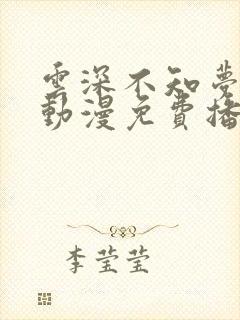 雲深不知夢
動漫免費播
李莹莹